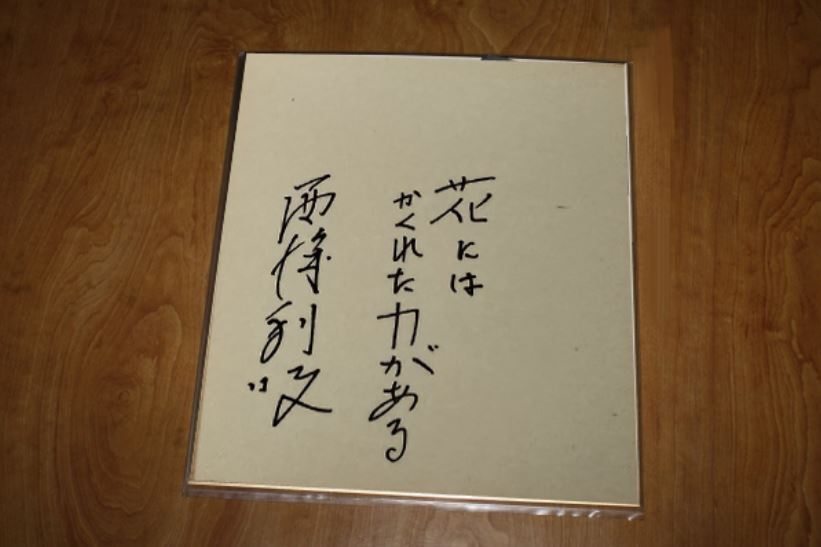 花には
かくれた力がある
西博利文